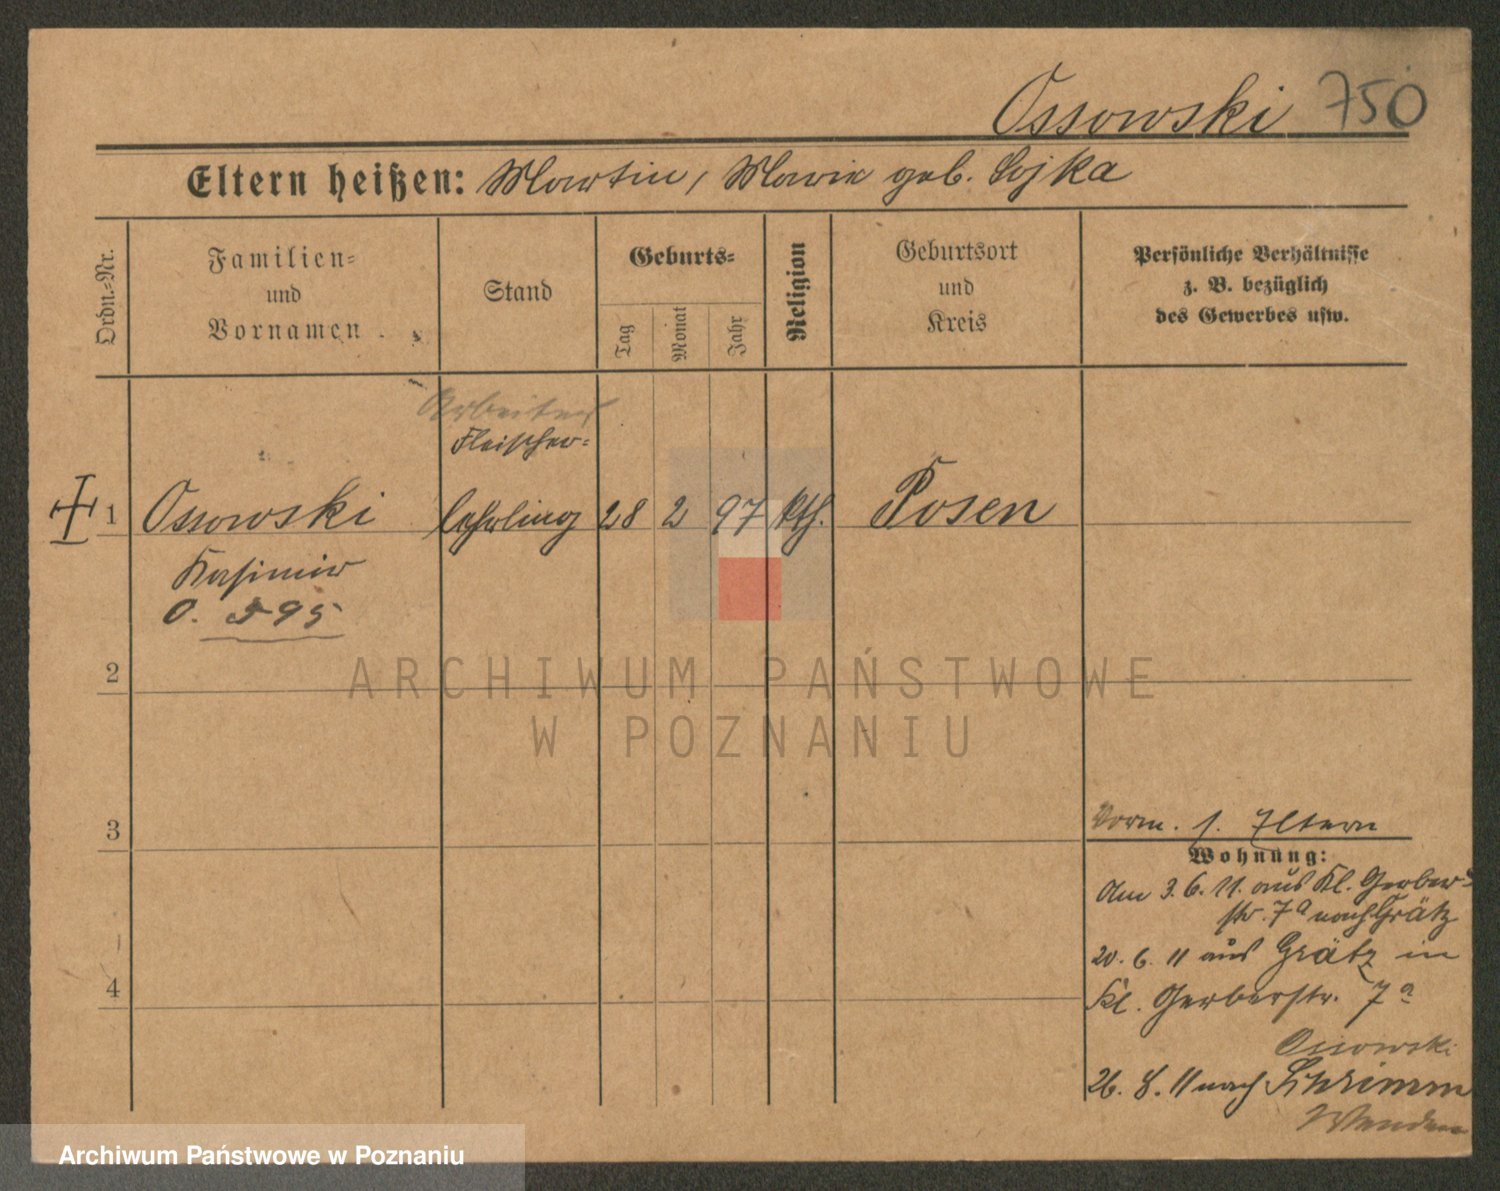 Ossowski 750
Eltern heißen: Martin, Marie geb. Sojka
Ordn.-Nr.
Familien-
und
Vornamen
Stand
Geburts-
Tag
Monat
Jahr
Religion
Geburtsort
und
Kreis
Persönliche Verhältnisse
z. B. bezüglich
des Gewerbes usw.
Arbeiter
Fleischer-
1 Ossowski lehrling 28 2 97 kth. Posen
Kasimir
O. 595
2
3
4
Vorm. s. Eltern
Wohnung:
Am 3.6.11. aus Kl. Gerber-
str. 7a nach Grätz
20. 6. 11 aus Grätz in
Kl. Gerberstr. 7a
Ossowski
26. 8. 11 nach Schrimm
ARCHIWUM PAŃSTWOWE
W POZNANIU
Archiwum Państwowe w Poznaniu